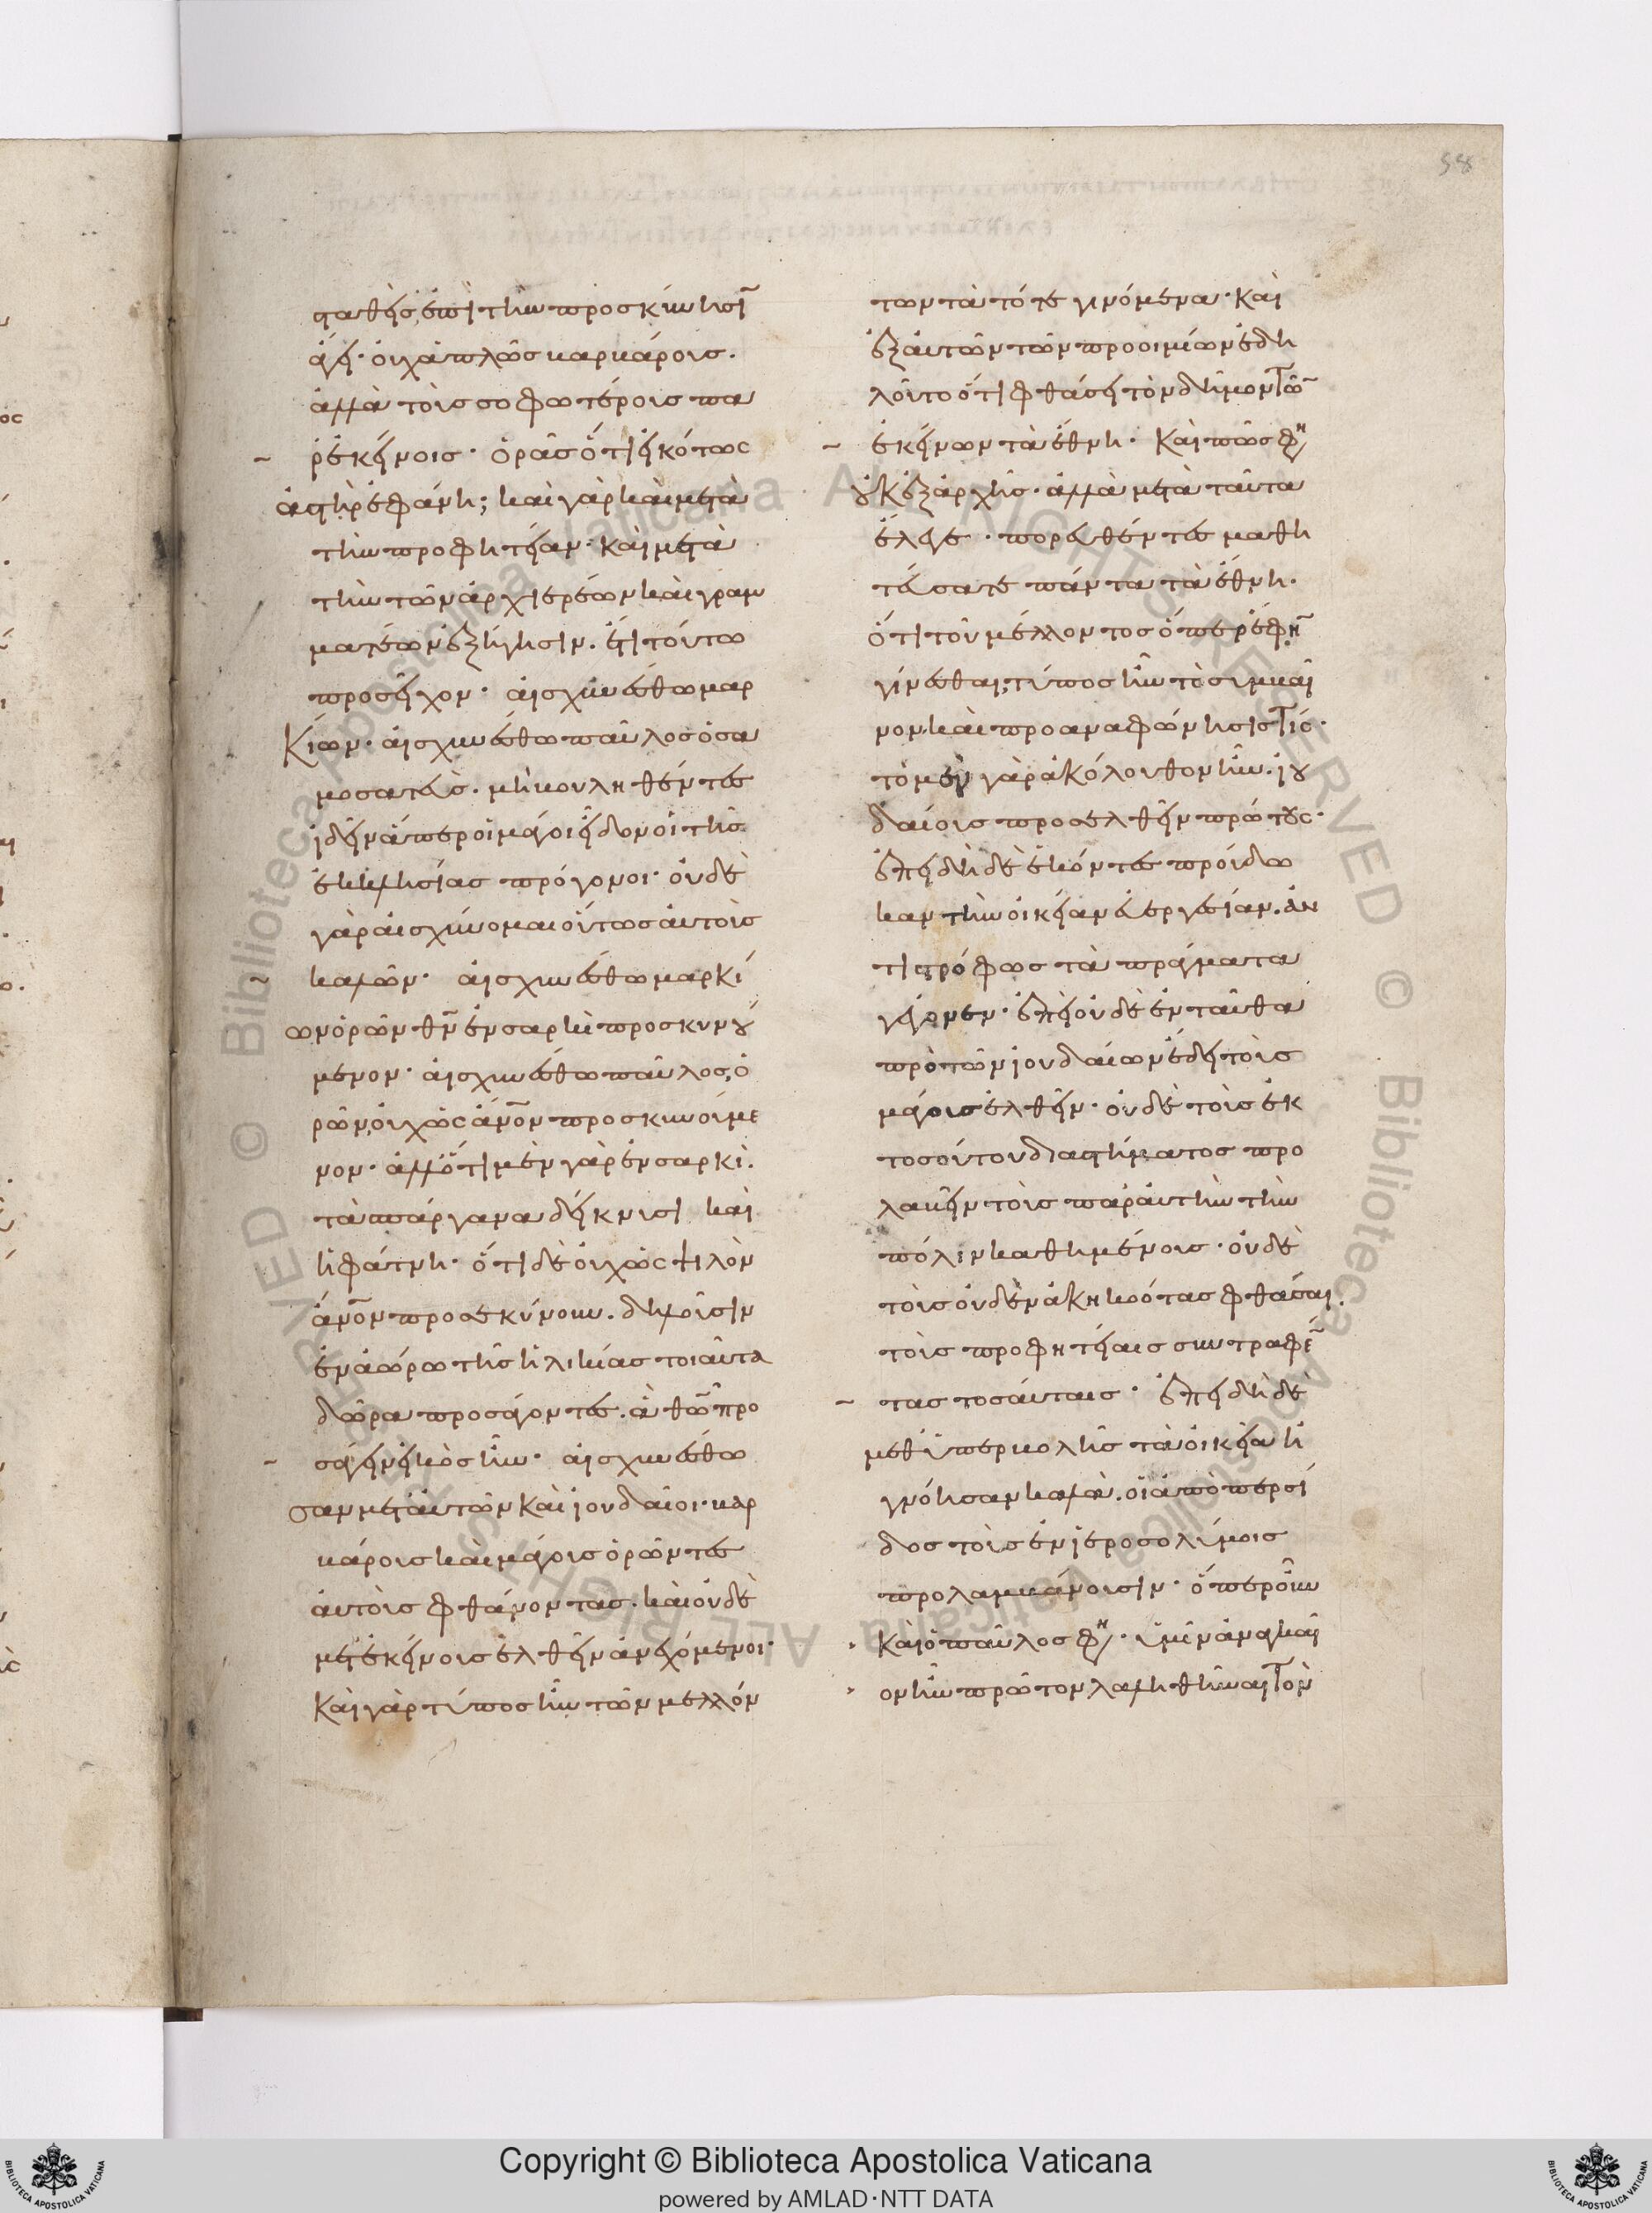 58
σταθεὶς, ἐπὶ τὴν προσκύνησῖ
ἄγει· οὐχ ἁπλῶς βαρβάροις.
ἀλλὰ τοῖς σοφωτέροις πα
ρ' ἐκείνοις· ὁρᾶς ὅτι εἰκότως
ἀστὴρ ἐφάνη; καὶ γὰρ καὶ μετὰ
τὴν προφητείαν· καὶ μετὰ
τὴν τῶν ἀρχιερέων καὶ γραμ
ματέων ἐξήγησιν. ἔτι τούτω
προσεῖχον· αἰσχυνέσθω μαρ
κίων· αἰσχυνέσθω παῦλος ὁ σα
μοσατεὺς. μὴ βουληθέντες
ἰδεῖν ἅπερ οἱ μάγοι εἶδον οἱ τῆς
ἐκκλησίας πρόγονοι· οὐδὲ
γὰρ αἰσχύνομαι οὕτως αὐτοὺς
καλῶν· αἰσχυνέσθω μαρκί
ων ὁρῶν θν̄ ἐν σαρκὶ προσκυνού
μενον· αἰσχυνέσθω παῦλος, ὁ
ρῶν, οὐχ ὡς ἄνον̄ προσκυνούμε
νον· ἀλλ' ὅτι μὲν γὰρ ἐν σαρκὶ.
τὰ σπάργανα δείκνυσι καὶ
ἡ φάτνη· ὅτι δὲ οὐχ ὡς ψιλὸν
ἄνον̄ προσεκύνουν. δηλοῦσιν
ἐν ἀώρω τῆς ἡλικίας τοιαῦτα
δῶρα προσάγοντες. ἃ θω̄ προ
σάγειν εἰκὸς ἦν· αἰσχυνέσθω
σαν μετ' αὐτῶν καὶ ἰουδαῖοι· βαρ
βάρους καὶ μάγους ὁρῶντες
αὐτοὺς φθάνοντας. καὶ οὐδὲ
μετ' ἐκείνους ἐλθεῖν ἀνεχόμενοι·
καὶ γὰρ τύπος ἦν τῶν μελλόν
των τὰ τότε γινόμενα· καὶ
ἐξ αὐτῶν τῶν προοιμίων ἐδη
λοῦτο ὅτι φθάσει τὸν δῆμον τοῦ
ἐκείνων τὰ ἔθνη· καὶ πῶς φη
οὐκ ἐξ ἀρχῆς· ἀλλὰ μετὰ ταῦτα
ἔλεγε· πορευθέντες μαθη
τεύσατε πάντα τὰ ἔθνη·
ὅτι τοῦ μέλλοντος ὅπερ ἔφην
γίνεσθαι, τύπος ἦν τὸ συμβαῖ
νον· καὶ προαναφώνησίς τις·
τὸ μὲν γὰρ ἀκόλουθον ἦν. ἰου
δαίους προσελθεῖν πρώτους·
ἐπειδὴ δὲ ἑκόντες προύδω
καν τὴν οἰκείαν εὐεργεσίαν. ἀν
τιστρόφως τὰ πράγματα
γέγονεν· ἐπεὶ οὐδὲ ἐνταῦθα
πρὸ τῶν ἰουδαίων ἔδει τοὺς
μάγους ἐλθεῖν· οὐδὲ τοὺς ἐκ
τοσούτου διαστήματος προ
λαβεῖν τοὺς παρ' αὐτὴν τὴν
πόλιν καθημένους· οὐδὲ
τοὺς οὐδὲν ἀκηκοότας φθάσαι
τοὺς προφητείαις συντραφέ
τας τοσαύταις· ἐπειδὴ δὲ
μεθ' ὑπερβολῆς τὰ οἰκεῖα ἠ
γνόησαν καλὰ. οἱ ἀπὸ περσί
δος τοὺς ἐν ἱεροσολύμοις
προλαμβάνουσιν· ὅπερ οὖν
καὶ ὁ παῦλος φη· ὑμῖν ἀναγκαῖ
ον ἦν πρῶτον λαληθῆναι τὸν
© Biblioteca Apostolica Vaticana · ALL RIGHTS RESERVED © Biblioteca Apostolica Vaticana · ALL RIGHTS RESERVED
Copyright © Biblioteca Apostolica Vaticana
powered by AMLAD·NTT DATA
BIBLIOTECA APOSTOLICA VATICANA
BIBLIOTECA APOSTOLICA VATICANA